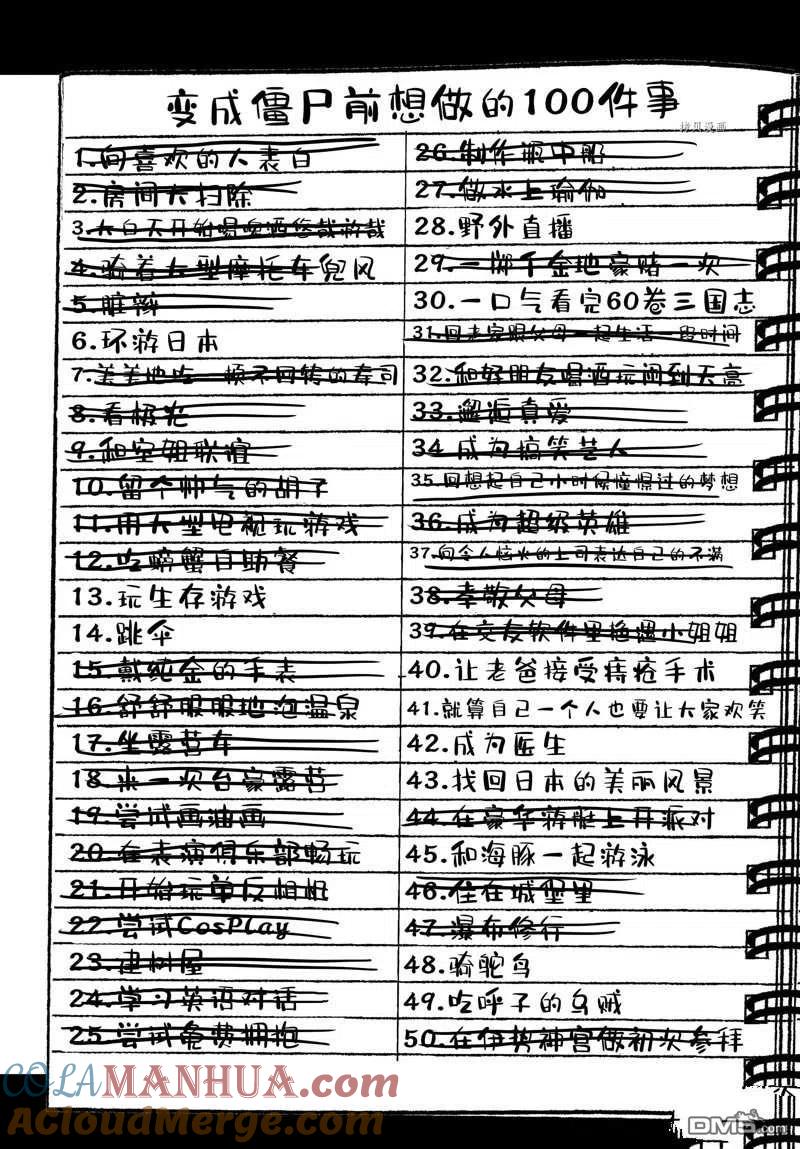 变成僵尸前想做的100件事
拷贝漫画
1.向喜欢的人表白
2.房间大扫除
3.大白天开始喝啤酒悠哉游哉
4.骑着大型摩托车兜风
5.脏辫
6.环游日本
7.美美地吃一顿不回转的寿司
8.看极光
9.和空姐联谊
10.留个帅气的胡子
11.用大型电视玩游戏
12.吃螃蟹自助餐
13.玩生存游戏
14.跳伞
15.戴纯金的手表
16.舒舒服服地泡温泉
17.坐露营车
18.来一次台豪露营
19.尝试画油画
20.在表演俱乐部畅玩
21.开始玩单反相机
22.尝试CosPlay
23.建树屋
24.学习英语对话
25.尝试免费拥抱
26.制作瓶中船
27.做水上瑜伽
28.野外直播
29.一掷千金地豪赌一次
30.一口气看完60卷三国志
31.回老家跟父母一起生活一段时间
32.和好朋友喝酒玩闹到天亮
33.邂逅真爱
34.成为搞笑艺人
35.回想起自己小时候憧憬过的梦想
36.成为超级英雄
37.向令人恼火的上司表达自己的不满
38.孝敬父母
39.在交友软件里艳遇小姐姐
40.让老爸接受痔疮手术
41.就算自己一个人也要让大家欢笑
42.成为医生
43.找回日本的美丽风景
44.在豪华游艇上开派对
45.和海豚一起游泳
46.住在城堡里
47.瀑布修行
48.骑鸵鸟
49.吃呼子的乌贼
50.在伊势神宫做初次参拜
COLAMANHUA.com
AcloudMerge.com
DM5.com